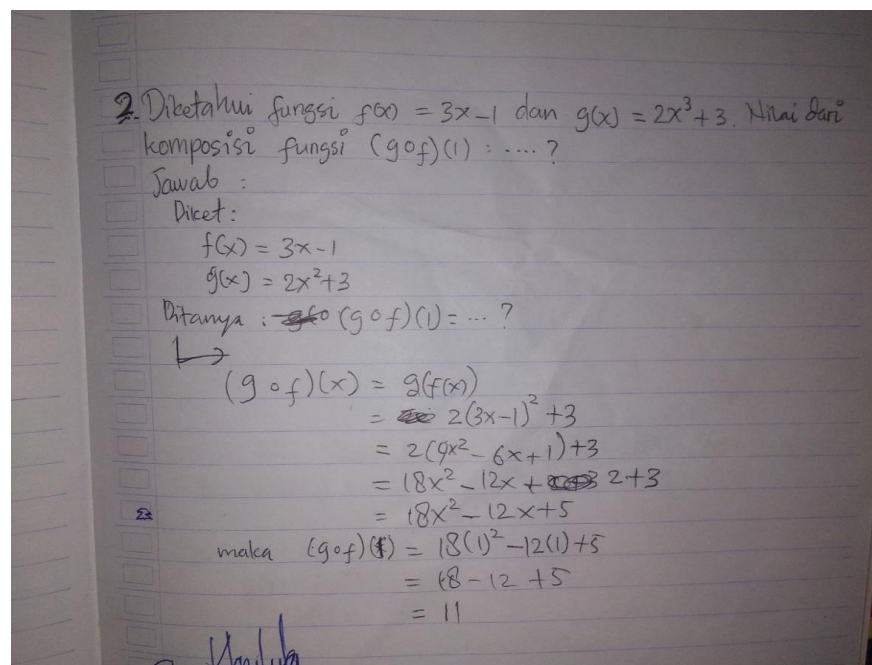 2. Diketahui fungsi f(x) = 3x-1 dan g(x) = 2x³+3. Nilai dari
komposisi fungsi (gof)(1) : ....?
Jawab :
Diket :
f(x) = 3x-1
g(x) = 2x²+3
Ditanya : (gof)(1) = ... ?
↳
(g o f)(x) = g(f(x))
= 2(3x-1)² +3
= 2(9x² - 6x+1)+3
= 18x² - 12x + 2+3
= 18x² - 12x+5
maka (gof)(1) = 18(1)² -12(1)+5
= 18 - 12 +5
= 11